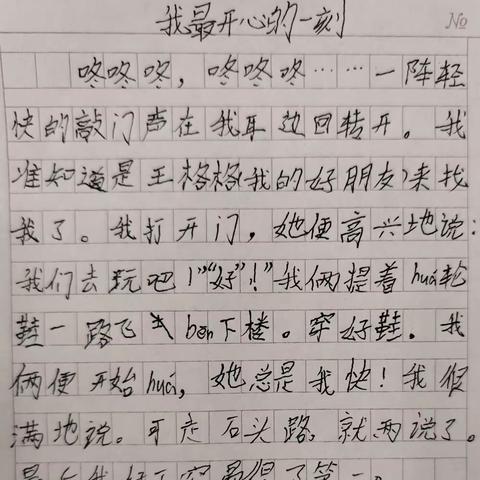 我最开心的一刻
No
咚咚咚，咚咚咚……一阵轻
快的敲门声在我耳边回转开。我
准知道是王格格我的好朋友来找
我了。我打开门，她便高兴地说：
我们去玩吧！”“好”！”我俩提着huá轮
鞋一路飞bēn下楼。穿好鞋．我
俩便开始huá，她总是我快！我很
满地说。可走石头路，就两说了。
最后我
得了第一。